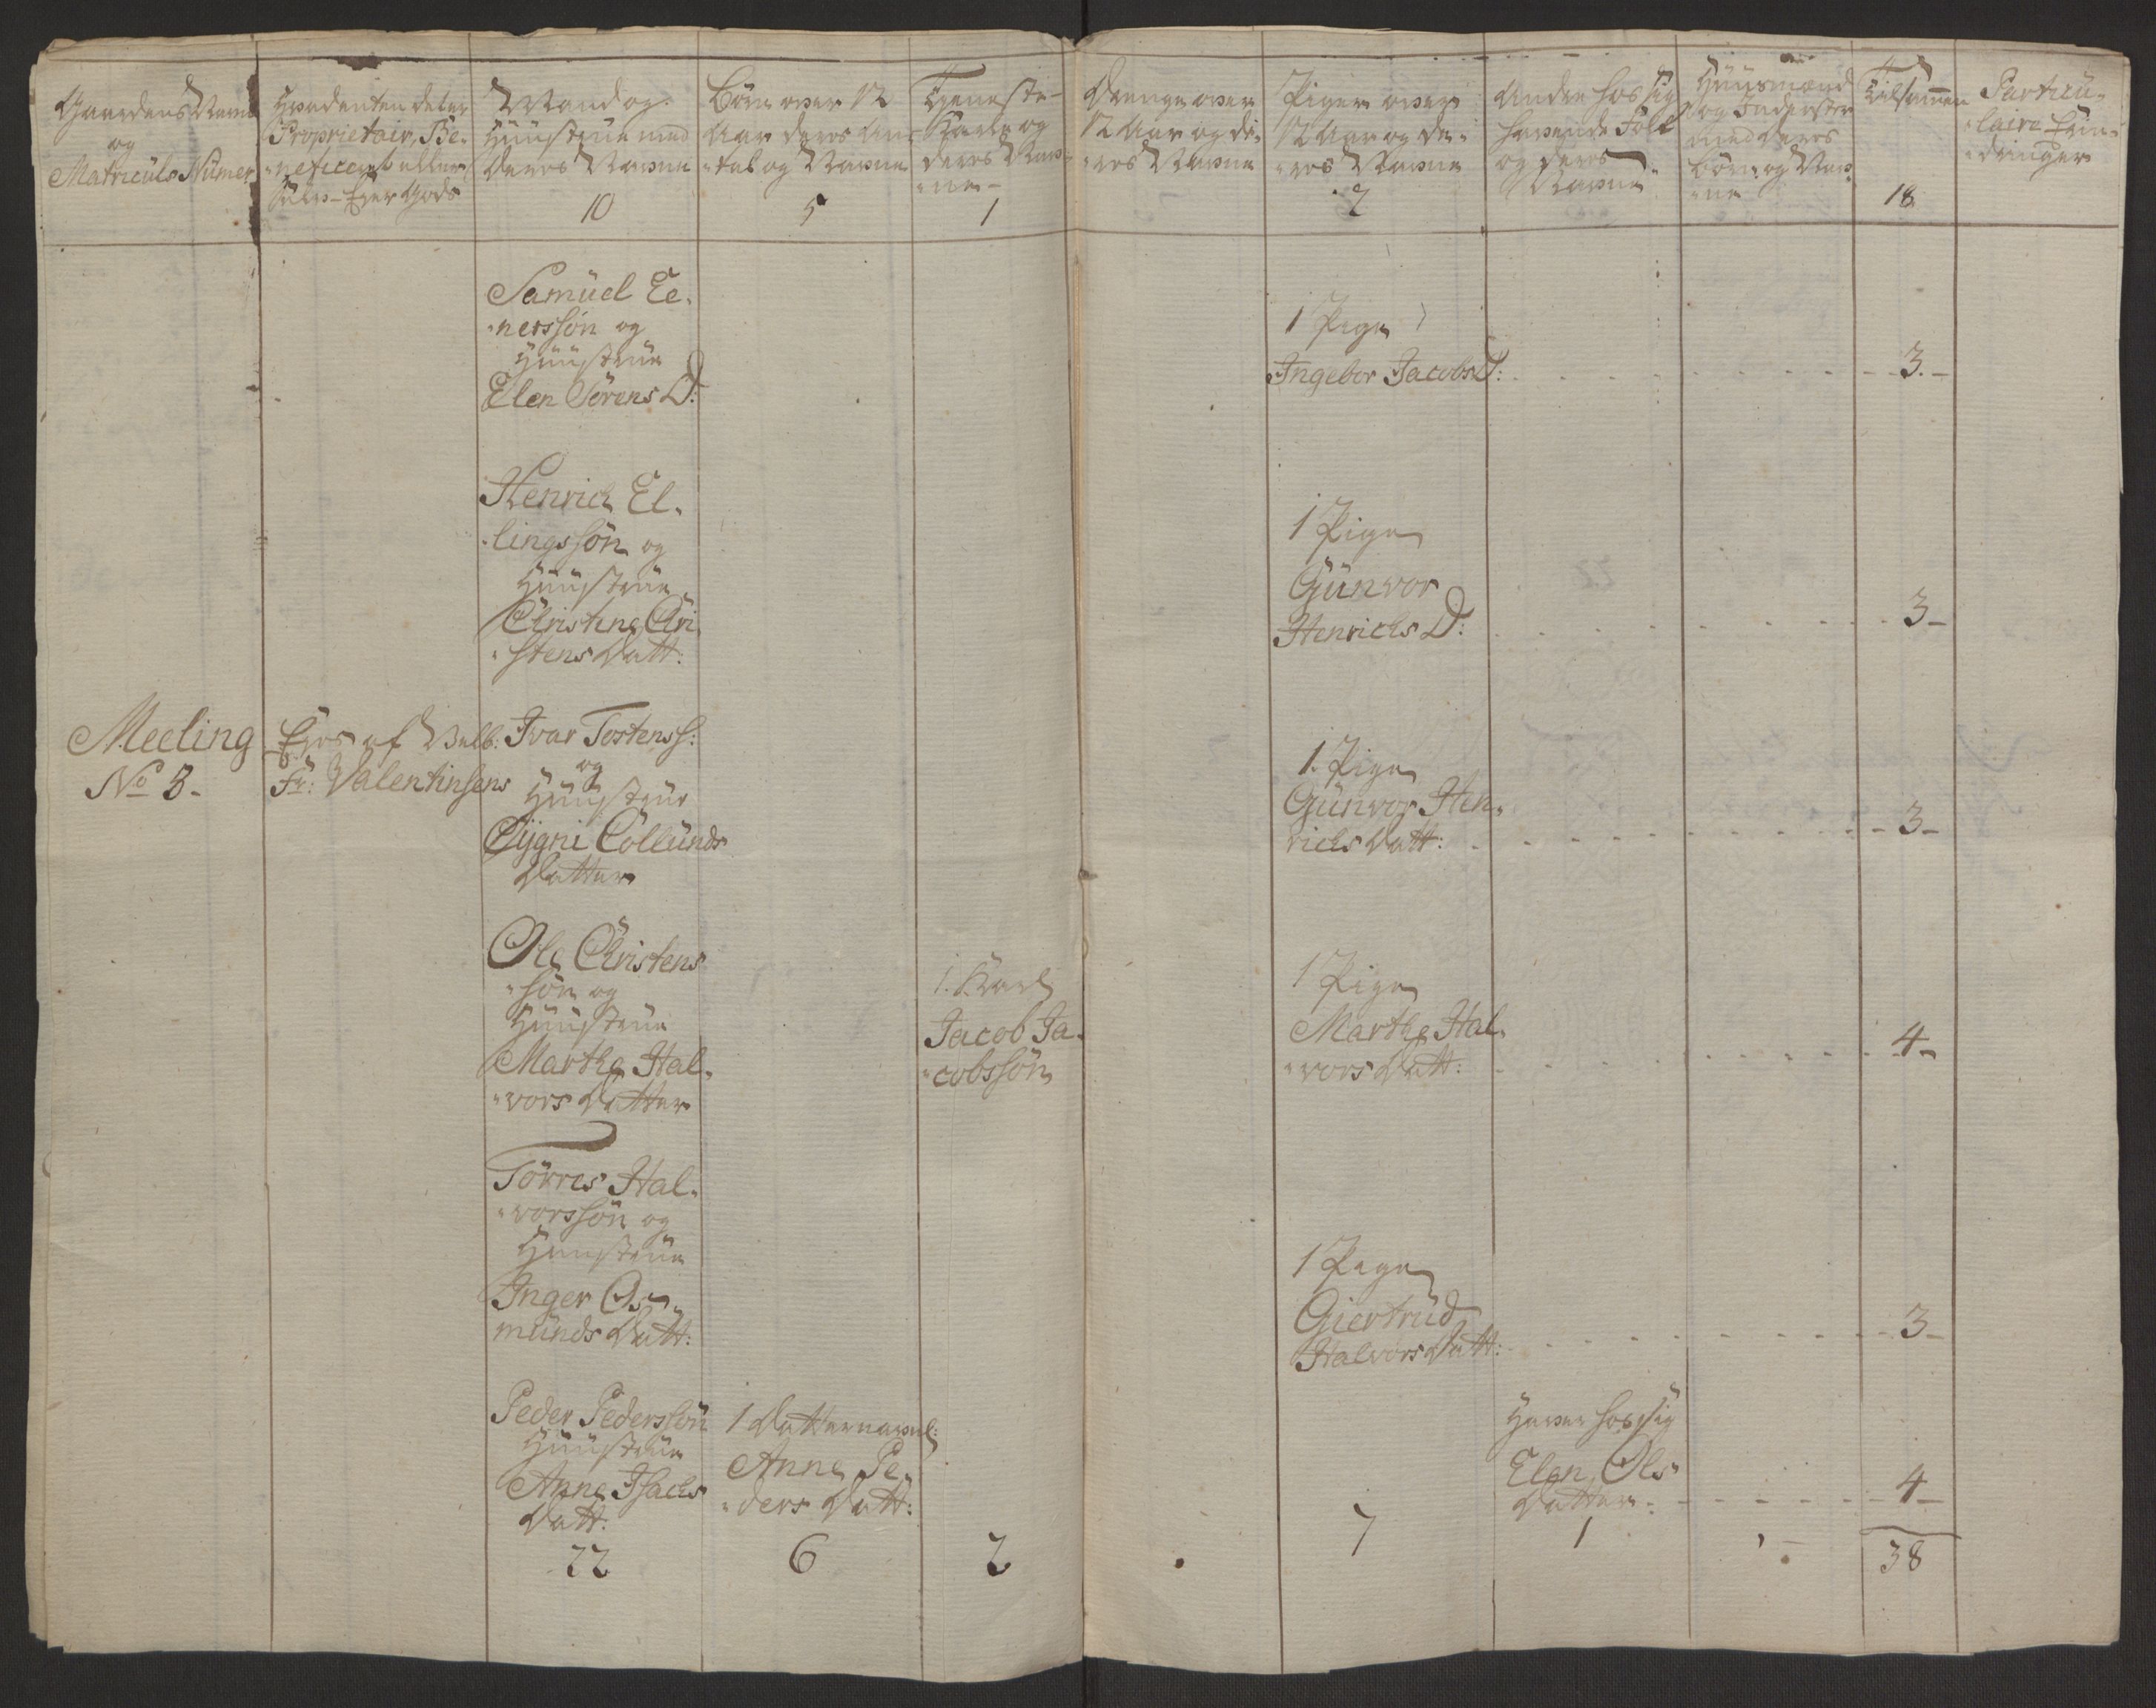 Gaardens Navne
og
Matriculs Numer
Hvadenten det er
Proprietair, Be-
neficeret eller
Selv-Ejer Gods
Mand og
Huustrue med
deres Navne
10
Börn over 12
Aar deres An-
tal og Navne
5
Tjeneste-
Karle og
deres Nav-
ne
1
Drenge over
12 Aar og de-
res Navne
Piger over
12 Aar og de-
res Navne
2
Andre hos sig
havende Folk
og deres
Navne
Huusmænd
og Inderster
med deres
börn og Nav-
ne
Tilsammen
18
Particu-
laire
Samüel Ee-
nerssön og
Huustrue
Elen Sörens D:
1 Pige
Ingebor Jacobs D:
3.
Henrich El-
lingssön og
Huustrue
Christine Chri-
stens Datt:
1 Pige
Günvor
Henrichs D:
3
Meeling
No 3.
Ejes af Velb:
Fr: Valentinsens
Ivar Tostens S:
og
Huustrue
Sÿgni Collünds
Datter
1. Pige
Günvor Hen-
richs Datt:
3
Ole Christens
sön og
Huustrue
Marthe Hal-
vors Datter
1. Karl
Jacob Ja-
cobssön
1 Pige
Marthe Hal-
vors Datt:
4
Törres Hal-
vorssön og
Huustrue
Inger Os-
münds Datt:
1 Pige
Giertrüd
Halvors Datt:
3
Peder Pederssön
Huustrue
Anne Isachs
Datt:
22
1 Datter navnl:
Anne Pe-
ders Datt:
6
2
7
Haver hos sig
Elen Ols
Datter
1
4
38